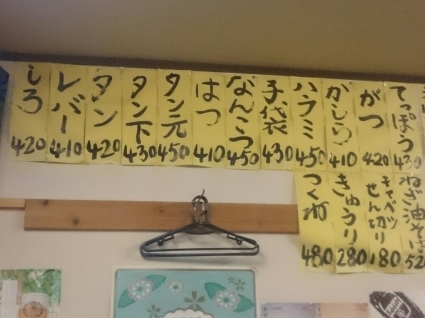 てっぽう 430
がつ 420
がしら 410
ハラミ 450
子袋 430
なんこつ 450
はつ 410
タン元 450
タン下 430
タン 420
レバー 410
しろ 420
キャベツせん切り 180
きゅうり 280
つくね 480